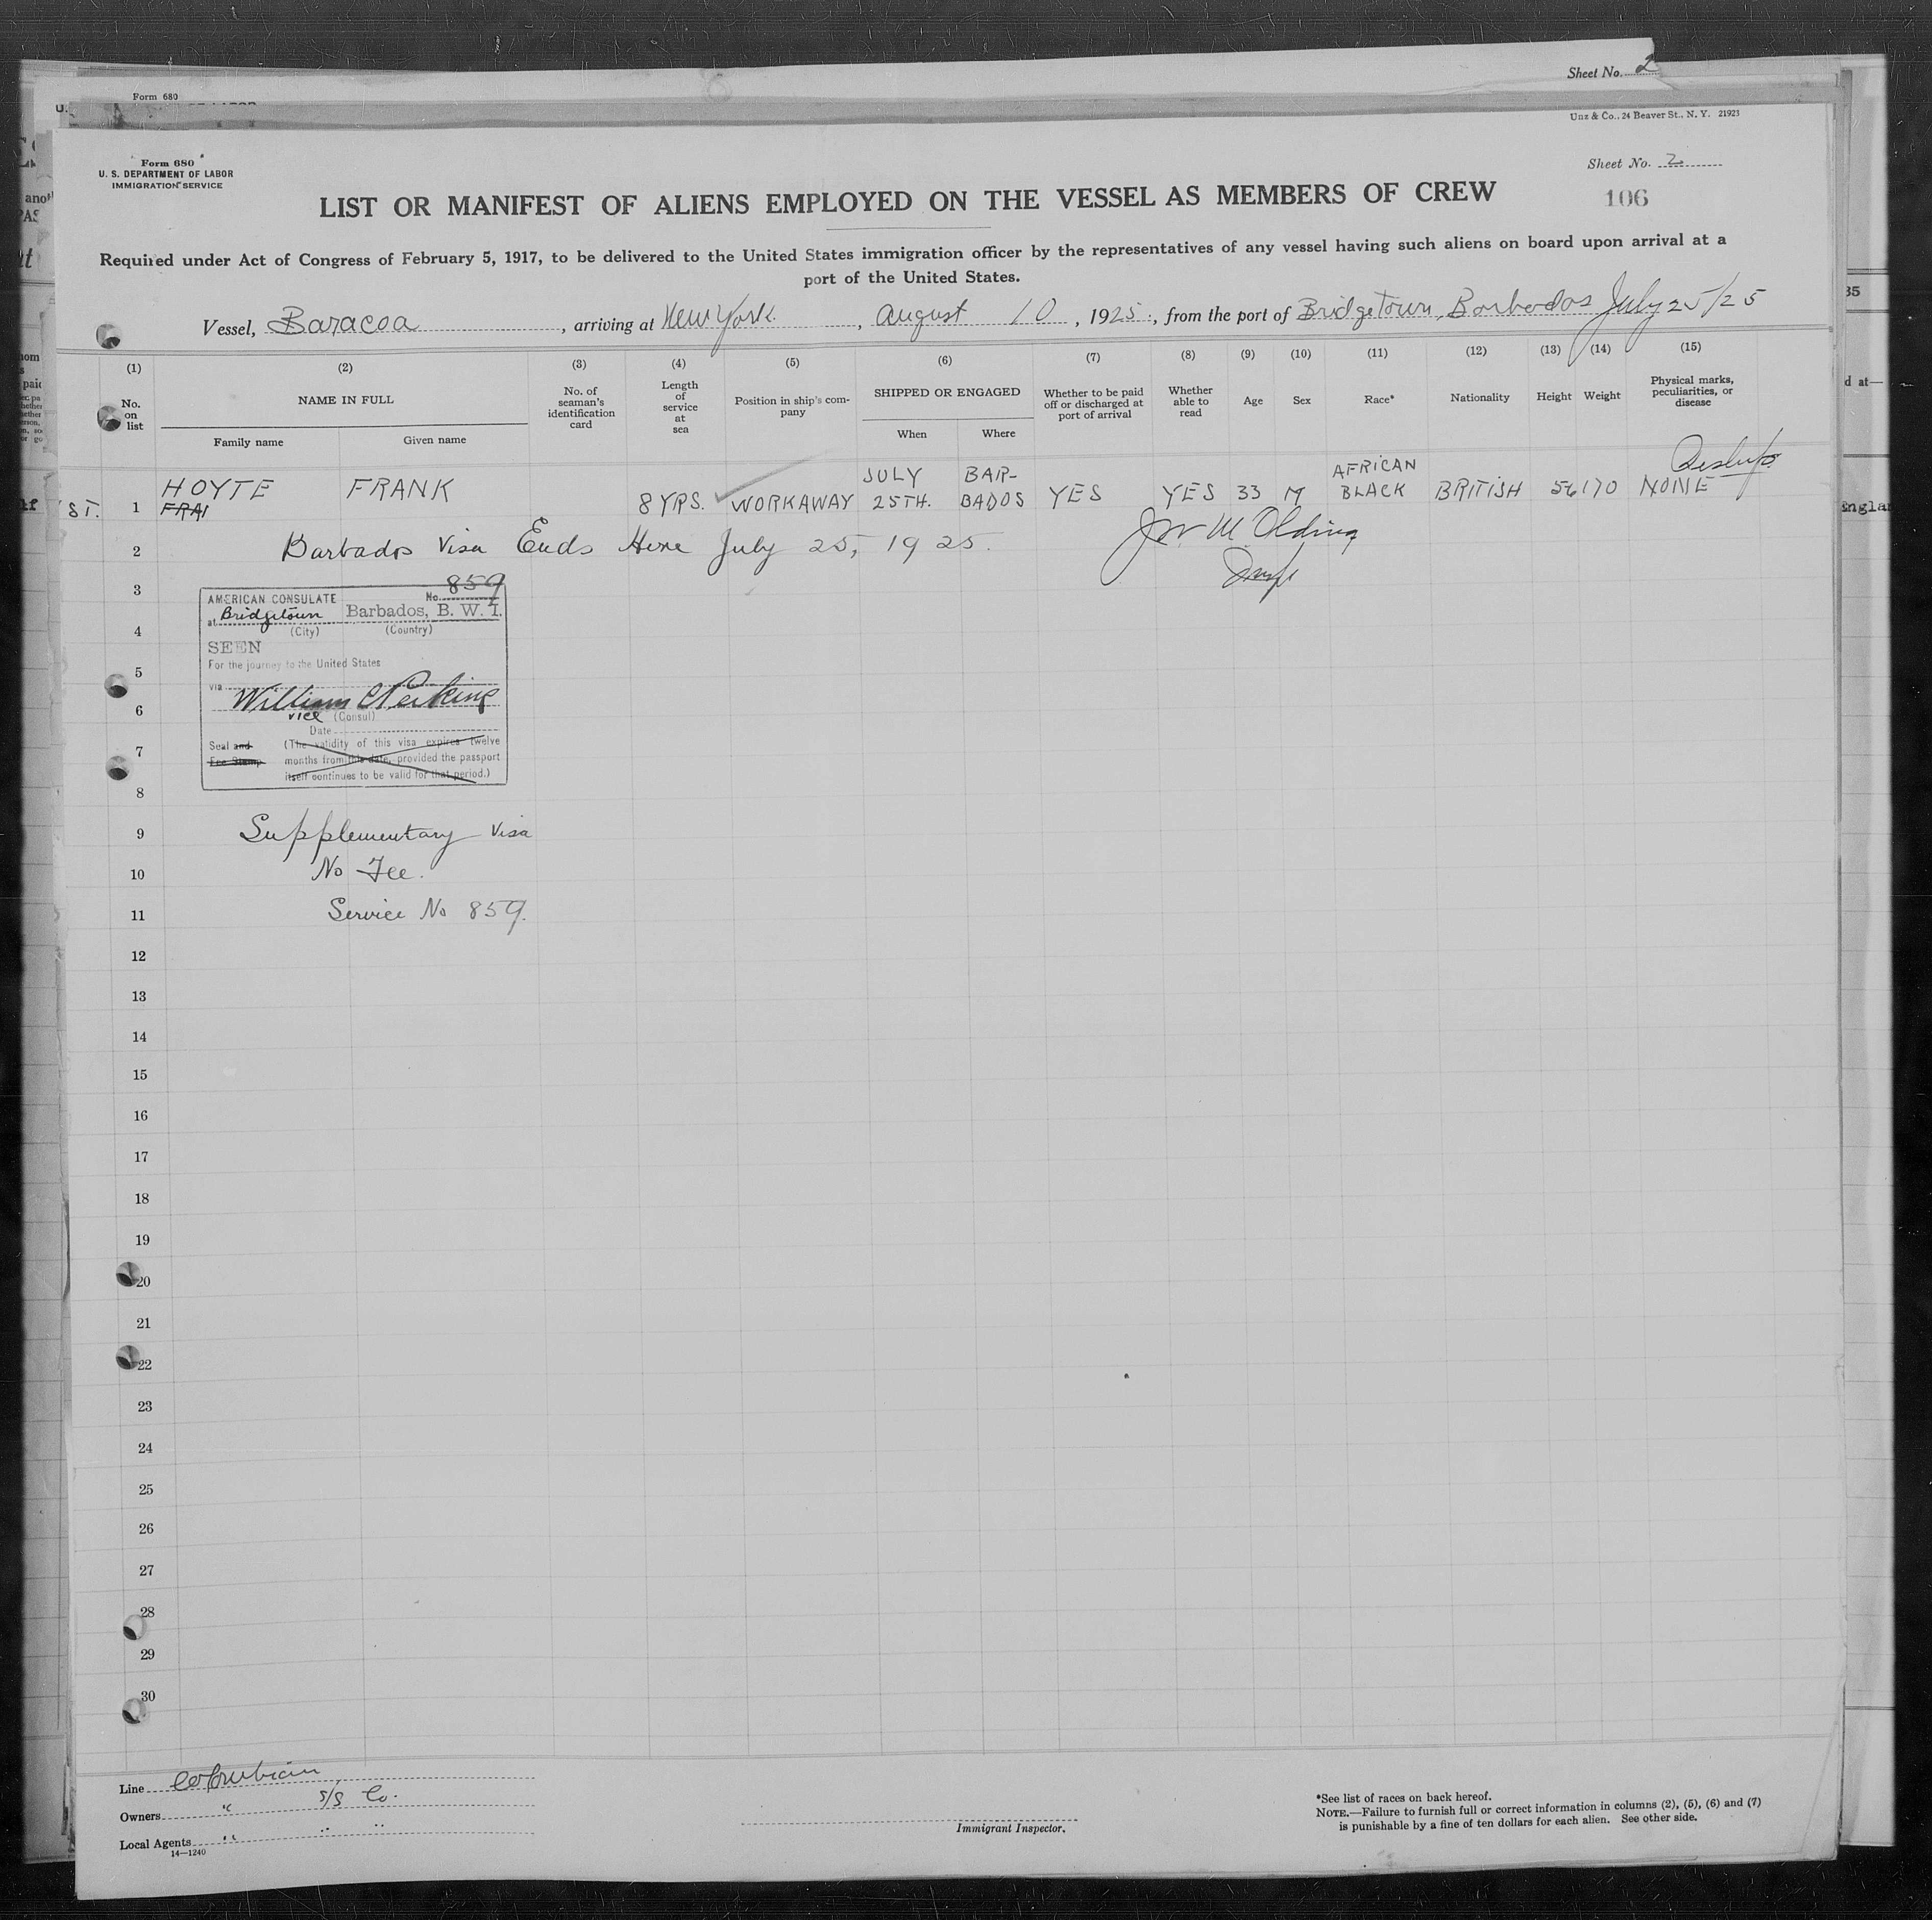 Sheet No. 2
Form 680
Unz & Co., 24 Beaver St., N. Y. 21923
Form 680
U. S. DEPARTMENT OF LABOR
IMMIGRATION SERVICE
Sheet No. 2
106
LIST OR MANIFEST OF ALIENS EMPLOYED ON THE VESSEL AS MEMBERS OF CREW
Required under Act of Congress of February 5, 1917, to be delivered to the United States immigration officer by the representatives of any vessel having such aliens on board upon arrival at a
port of the United States.
Vessel, Baracoa, arriving at New York, August 10, 1925, from the port of Bridgetown, Barbados July 25/25
(1) (2) (3) (4) (5) (6) (7) (8) (9) (10) (11) (12) (13) (14) (15)
No. on list NAME IN FULL No. of seaman's identification card Length of service at sea Position in ship's company SHIPPED OR ENGAGED Whether to be paid off or discharged at port of arrival Whether able to read Age Sex Race* Nationality Height Weight Physical marks, peculiarities, or disease
Family name Given name When Where
ST. 1 HOYTE FRANK 8 YRS. WORKAWAY JULY 25TH. BAR-BADOS YES YES 33 M AFRICAN BLACK BRITISH 56 170 NONE
FRAI
2 Barbados Visa Ends Here July 25, 1925.
3
AMERICAN CONSULATE No. 859
at Bridgetown Barbados, B. W. I.
4 (City) (Country)
SEEN
For the journey to the United States
5
via
William Perkins
6 vice (Consul)
Date
7 Seal and (The validity of this visa expires twelve
Fee Stamp months from this date, provided the passport
itself continues to be valid for that period.)
8
9 Supplementary Visa
10 No Fee.
11 Service No 859.
12
13
14
15
16
17
18
19
20
21
22
23
24
25
26
27
28
29
30
Line Colombian
Owners " S/S Co.
Local Agents " " "
14—1240
Immigrant Inspector.
*See list of races on back hereof.
NOTE.—Failure to furnish full or correct information in columns (2), (5), (6) and (7)
is punishable by a fine of ten dollars for each alien. See other side.